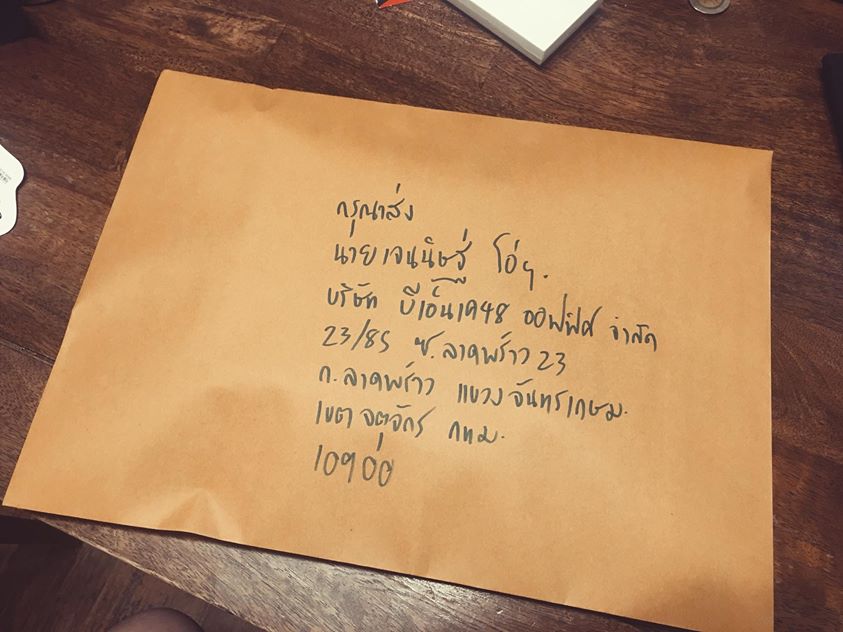 กรุณาส่ง
นายเจนนิษฐ์ โอ่ๆ.
บริษัท บีเอ็นเค48 ออฟฟิศ จำกัด
23/85 ซ.ลาดพร้าว 23
ถ.ลาดพร้าว แขวงจันทรเกษม.
เขต จตุจักร กทม.
10900